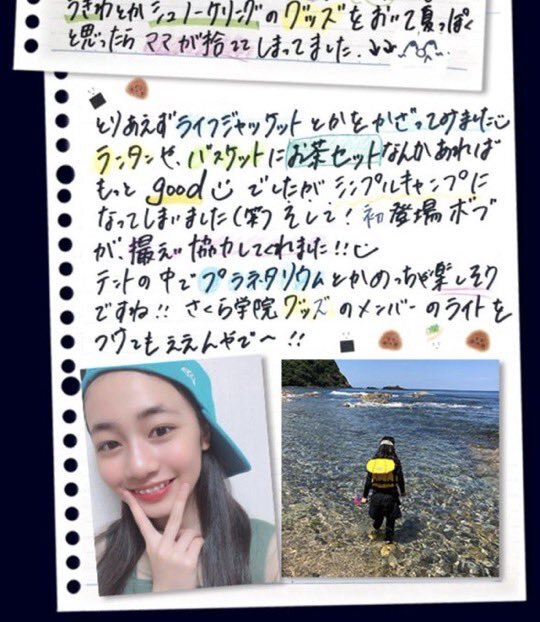 うきわとかシュノーケリングのグッズをおいて夏っぽく
と思ったらママが捨ててしまってました
とりあえずライフジャケットとかをかざってみました
ランタンや、バスケットにお茶セットなんかあれば
もっと good でしたが シンプルキャンプに
なってしまいました(笑) そして! 初登場ボブ
が、撮影協力してくれました!!
テントの中でプラネタリウムとかめっちゃ楽しそう
ですね!! さくら学院グッズのメンバーのライトを
つけてもええんやで〜 !!